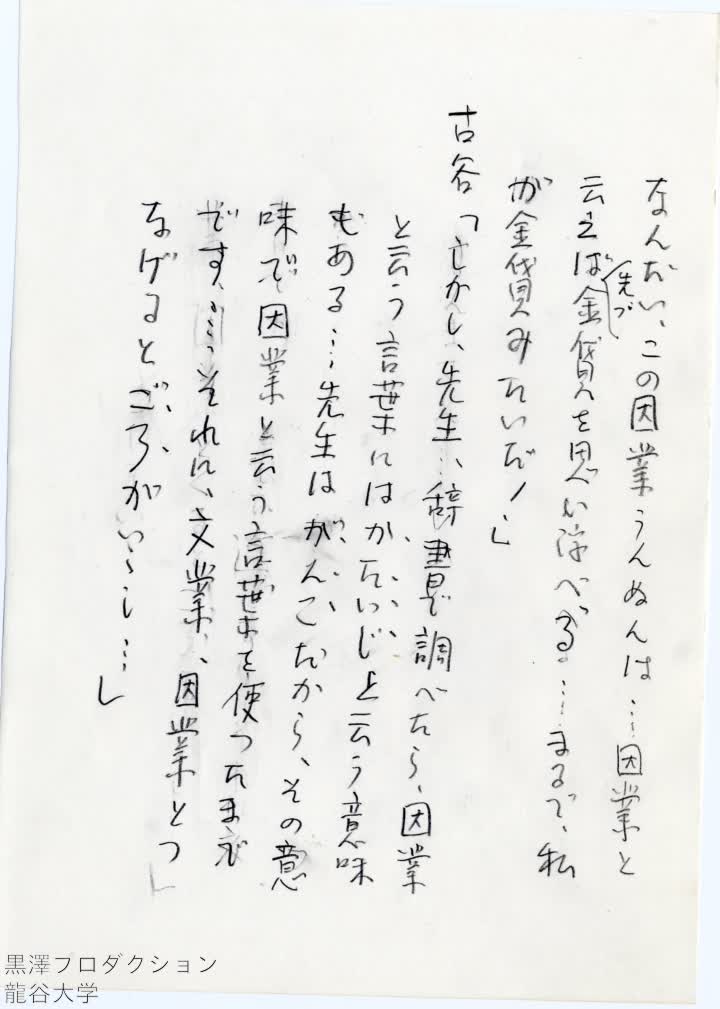 なんだい、この因業うんぬんは…因業と
云えば先づ金貸を思い浮べる…まるで、私
が金貸みたいだ!」
古谷「しかし、先生、辞書で調べたら、因業
と云う言葉にはかたいじと云う意味
もある…先生はがんこだから、その意
味で因業と云う言葉を使ったまで
です…それに、文業、因業とつ
なげるところがいゝし…」
黒澤プロダクション
龍谷大学